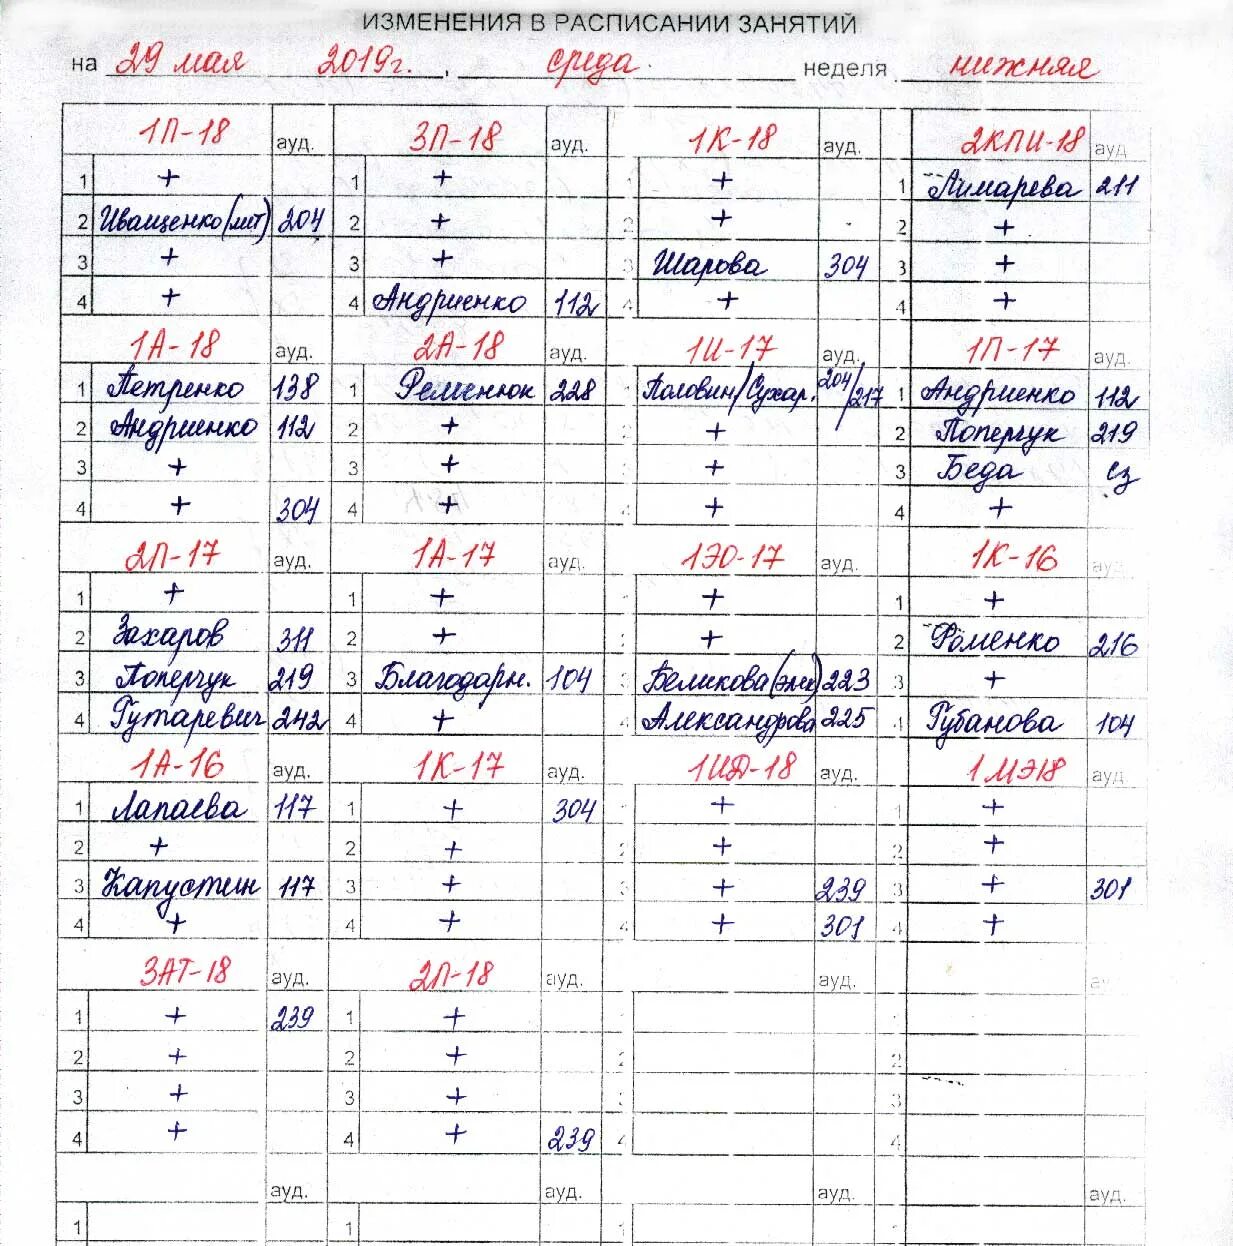 ИЗМЕНЕНИЯ В РАСПИСАНИИ ЗАНЯТИЙ
на 29 мая 2019г. , среда неделя нижняя
1П-18 ауд. 3П-18 ауд. 1К-18 ауд. 2КПИ-18 ауд
1 + 1 + 1 + 1 Лимарева 211
2 Иващенко (мат) 204 2 + 2 + 2 +
3 + 3 + 3 Шарова 304 3 +
4 + 4 Андриенко 112 4 + 4 +
1А-18 ауд. 2А-18 ауд. 1И-17 ауд. 1П-17 ауд.
1 Петренко 138 1 Ременюк 228 Половин/Сухар. 204/217 1 Андриенко 112
2 Андриенко 112 2 + 2 + 2 Поперчук 219
3 + 3 + + 3 Беда сз
4 + 304 4 + + 4 +
2П-17 ауд. 1А-17 ауд. 1ЭО-17 ауд. 1К-16 ауд
1 + 1 + + 1 +
2 Захаров 311 2 + + 2 Фоменко 216
3 Поперчук 219 3 Благодарн. 104 3 Беликова 223 3 +
4 Гутаревич 242 4 + 4 Александрова 225 4 Губанова 104
1А-16 ауд. 1К-17 ауд. 1ИД-18 ауд. 1МЭ18 ауд
1 Лапаева 117 1 + 304 + 1 +
2 + 2 + 2 + 2 +
3 Капустин 117 3 + 3 + 239 3 + 301
4 + 4 + 4 + 301 4 +
3АТ-18 ауд. 2П-18 ауд. ауд. ау
1 + 239 1 +
2 + 2 + 2 2
3 + 3 + 3 3
4 + 4 + 239 4 4
ауд. ауд. ауд. ауд.
1 1 1 1